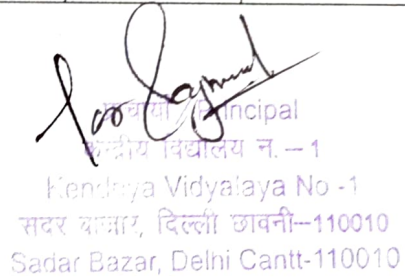 for
प्राचार्य / Principal
केन्द्रीय विद्यालय न. – 1
Kendriya Vidyalaya No -1
सदर बाजार, दिल्ली छावनी–110010
Sadar Bazar, Delhi Cantt-110010